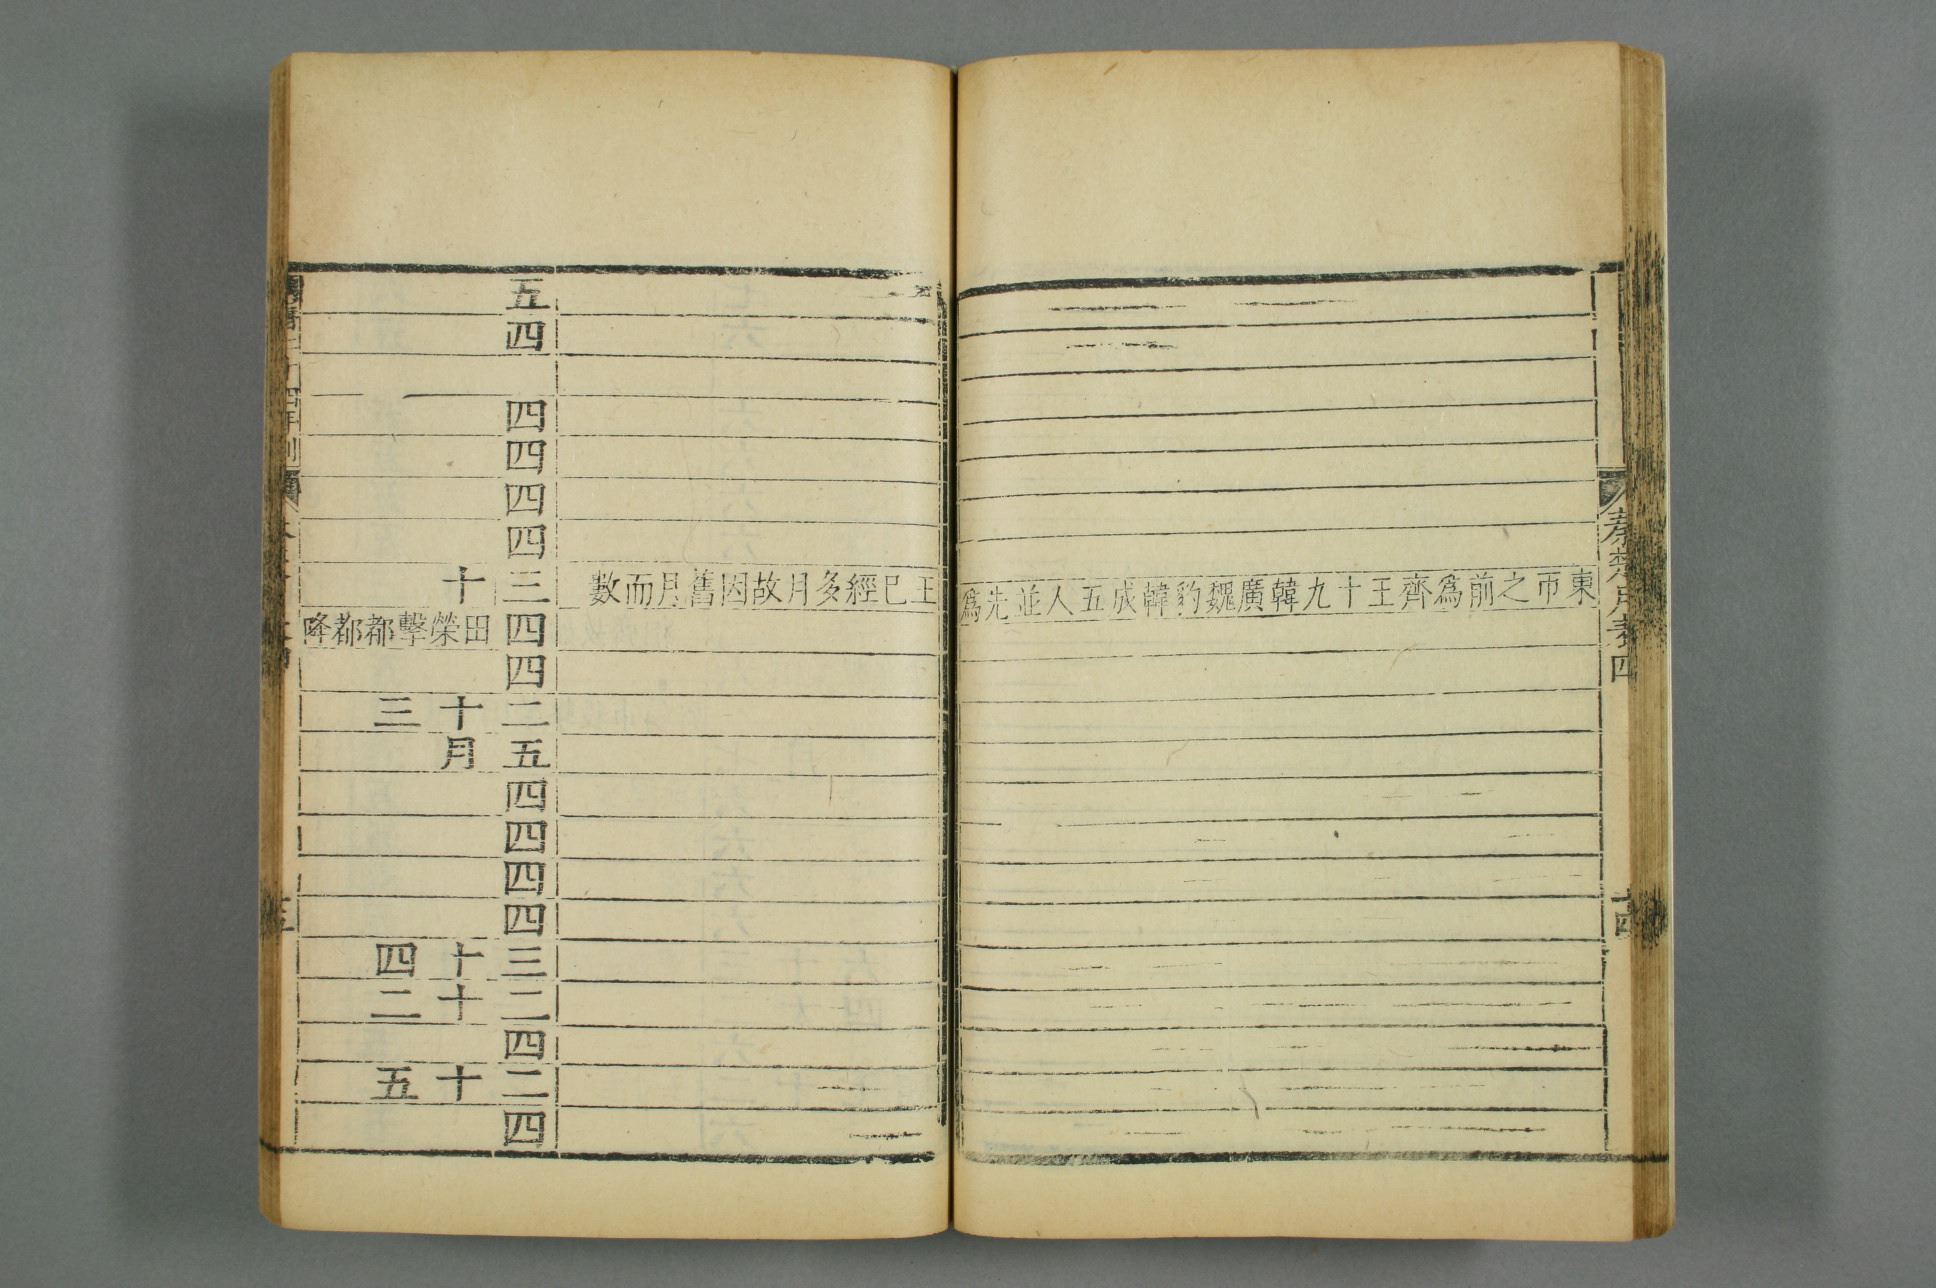 秦楚月表四
東市之前爲齊王十九韓廣魏豹韓成五人並先爲
王巳經多月故因舊月而數
五
四
四
四
四
四
三十
四田榮擊都都降
四
二十三
五月
四
四
四
四
三十四
二十二
四
二十五
四
萬曆二十四年刊